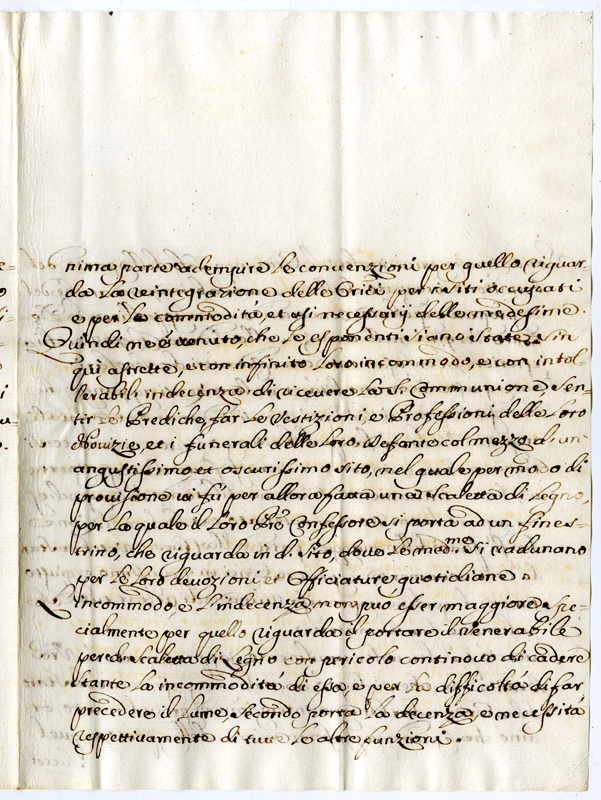 nima parte adempire le convenzioni per quello riguar=
da la reintegrazione delle Grici per i siti occupati
e per le commodità et usi necessarij delle medesime.
Quindi ne è venuto, che le esponenti siano state sin
quì astrette, e con infinito loro incommodo, e con intol=
lerabile indecenza di ricevere la S. Communione sen=
tir le Prediche, far le Vestizioni, e Professioni delle loro
Novizie, et i funerali delle loro Defonte col mezzo di un
angustissimo et oscurissimo sito, nel quale per modo di
provisione vi fù per allora fatta una scaletta di legno,
per la quale il loro Pre Confessore si porta ad un fines=
trino, che riguarda in di. sito, dove le med.me si radunano
per le loro devozioni et Officiature quotidiane
L'incommodo, e l'indecenza non può esser maggiore spe=
cialmente per quello riguarda il portare il Venerabile
per da scaletta di legno con pericolo continovo di cadere
stante la incommodità di essa, e per la difficoltà di far
precedere il lume secondo porta la decenza, e necessità
respettivamente di tutte le altre funzioni.